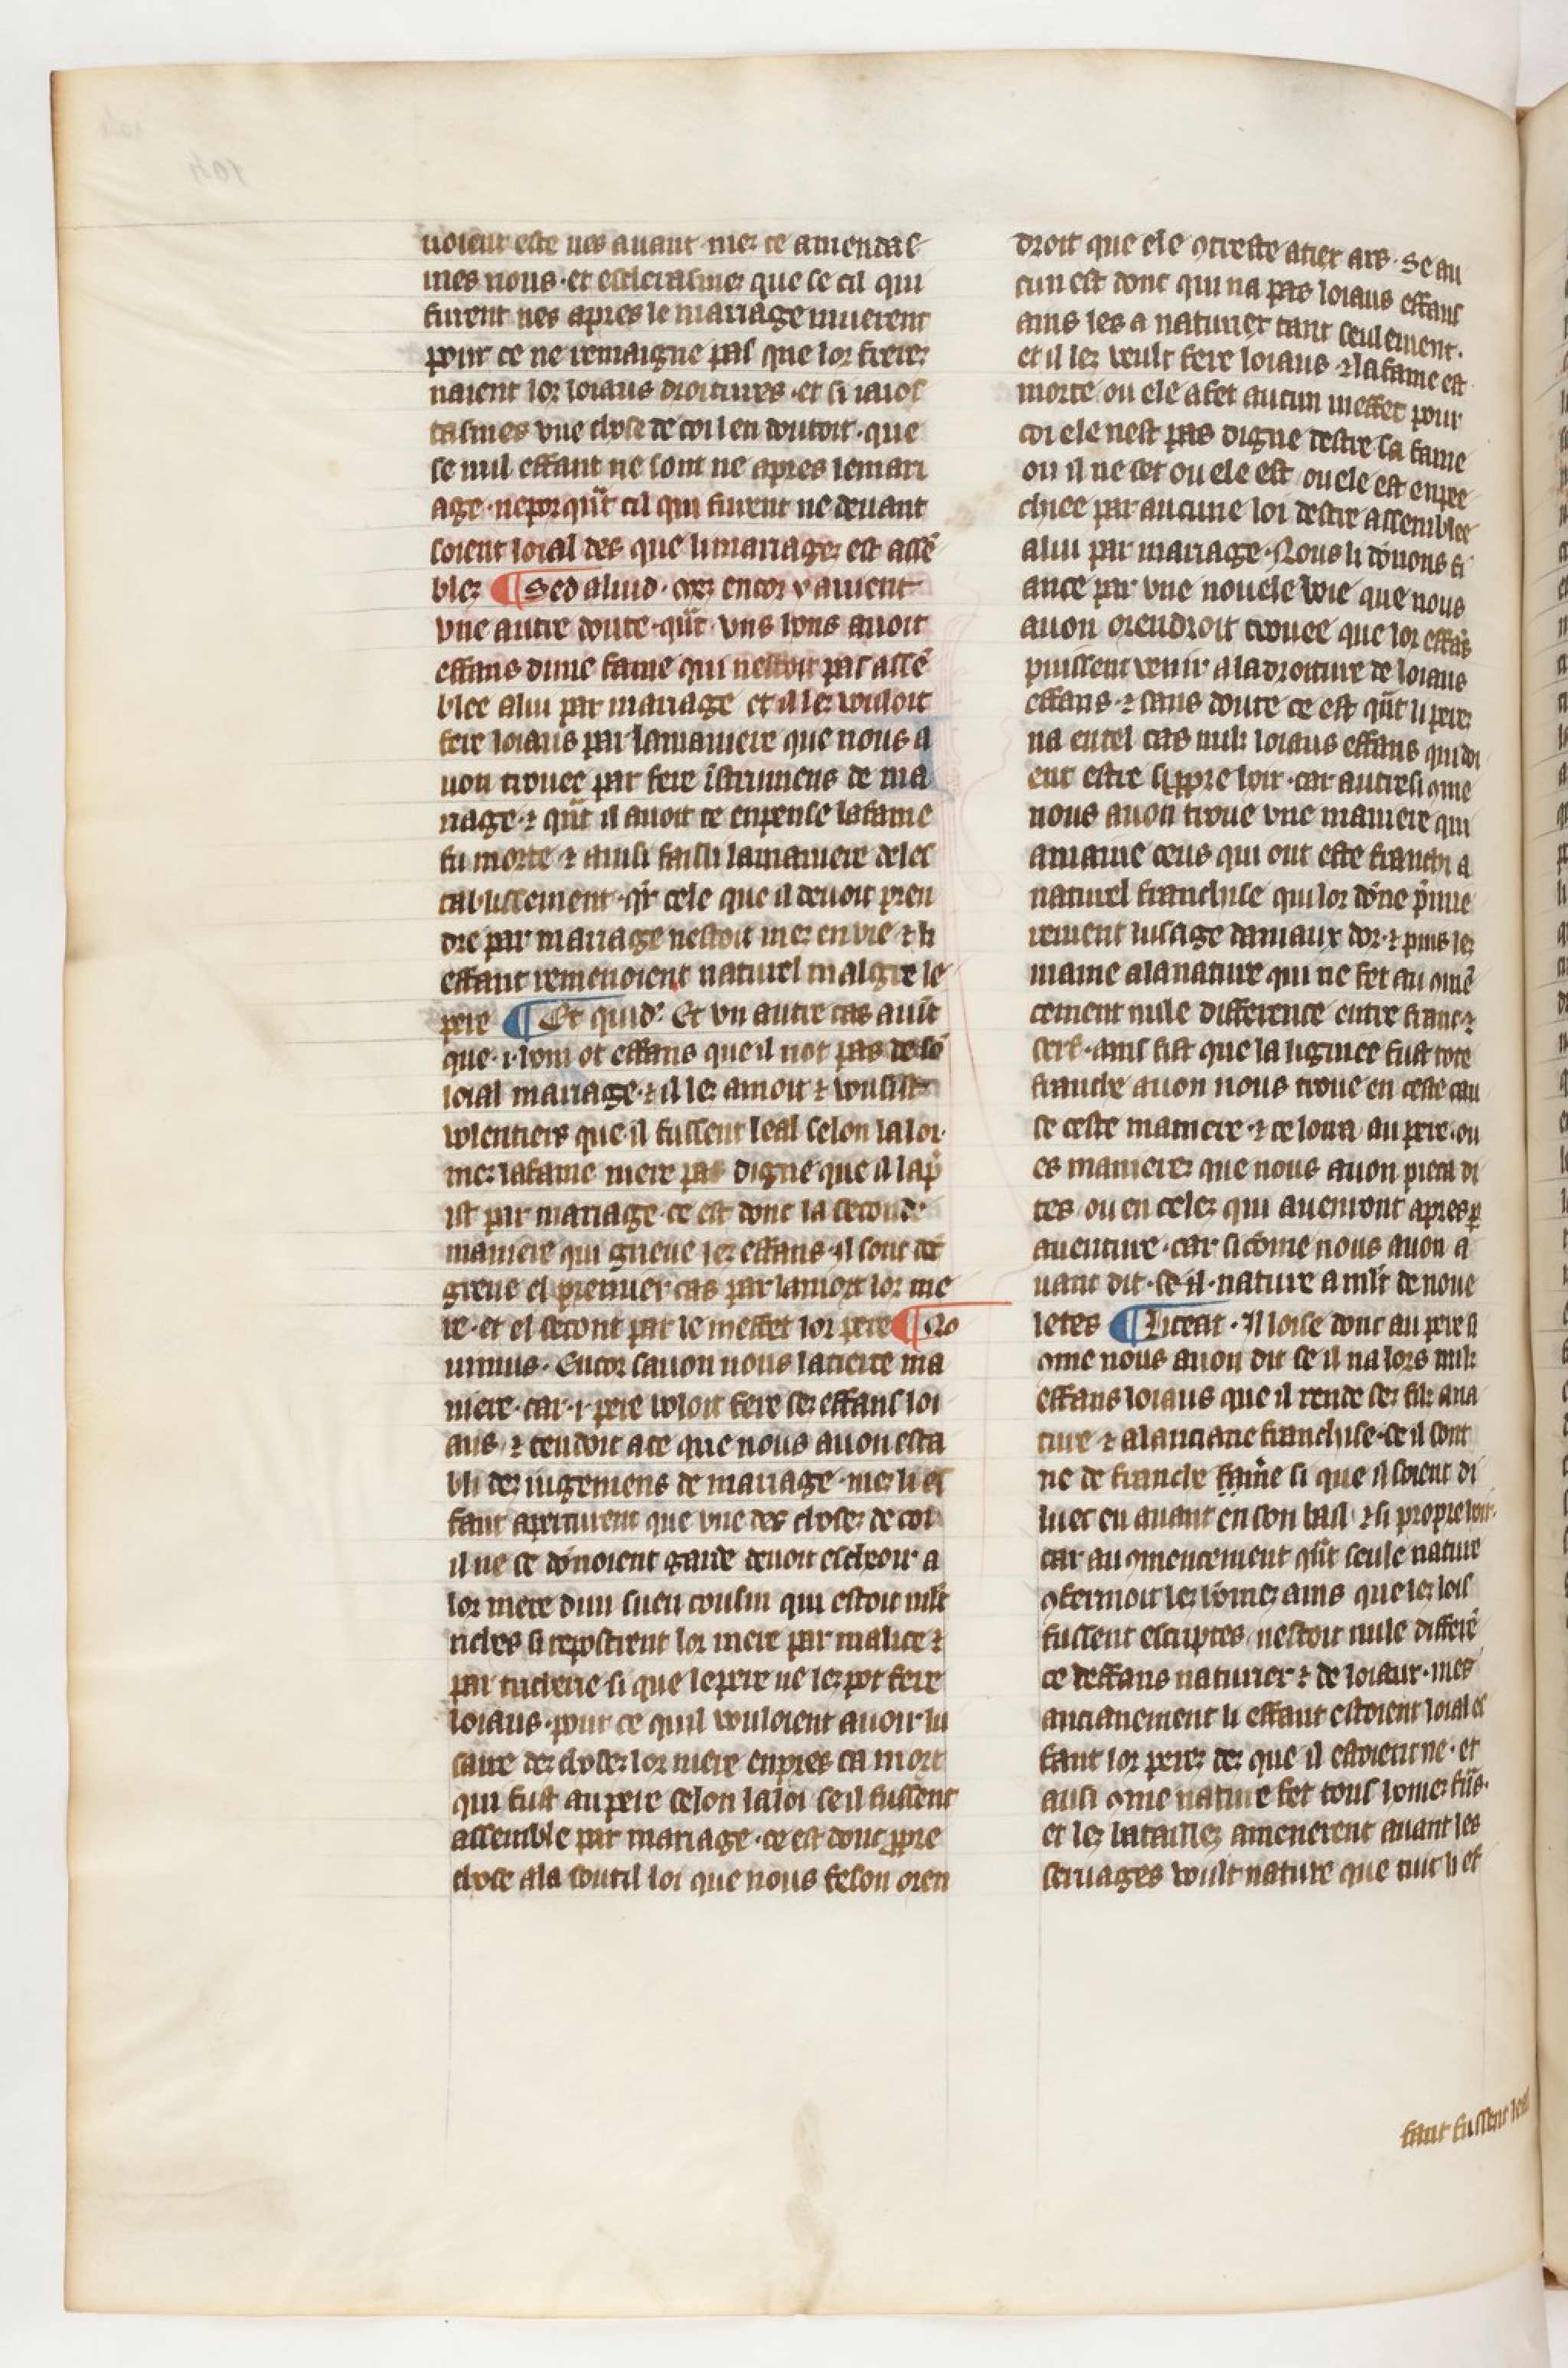 uoient este nes auant mez ce amendas
mes nous et esclerasmez que se cil qui
furent nes apres le mariage muerent
pour ce ne remaigne pas que lor frerez
naient lor loiaus droitures et si iaios
tasmes vne chose de coi len doutoit que
se nul effant ne sont ne apres le mari
age neporqut cil qui furent ne deuant
soient loial des que li mariagez est assē
blez ¶ Sed aliud. Mez encor y auient
vne autre doute qut vns hons auoit
effans dune fame qui nestoit pas assē
blee a lui par mariage et il lez vouloit
fere loiaus par la maniere que nous a
uon trouee par fere īstrumens de ma
riage ⁊ qut il auoit ce enpense la fame
fu morte ⁊ ainsi failli la maniere de les
tablissement qr cele que il deuoit pren
dre par mariage nestoit mez en vie ⁊ li
effant remenoient naturel malgre le
pere ¶ Et quid. Et vn autre cas auīt
que .i. hom ot effans que il not pas de sō
loial mariage ⁊ il lez amoit ⁊ vousist
volentiers que il fussent leal selon la loi
mez la fame niere pas digne que il lap̄
ist par mariage ce est donc la seconde
maniere qui grieue lez effans il sont de
greue el premier cas par la mort lor me
re et el secont par le meffet lor pere ¶ No
uimus. Encor sauon nous la tierce ma
niere car .i. pere voloit fere sez effans loi
aus ⁊ tendoit a ce que nous auon esta
bli dez iugemens de mariage mez li ef
fant aperturent que vne des chosez de coi
il ne se dōnoient garde deuoit escheoir a
lor mere dun suen cousin qui estoit mlt
riches si repostrent lor mere par malice ⁊
par tricherie si que le pere ne lez pot fere
loiaus pour ce quil vouloient auoir lu
saire dez chosez lor mere enpres sa mort
qui fust au pere selon la loi se il fussent
assemble par mariage ce est donc ppre
chose a la soutil loi que nous feson oren
droit que ele otreste a tiex ars. Se au
cun est donc qui na pas loiaus effans
ains les a naturiex tant seulement.
et il lez veult fere loiaus ⁊ la fame est
morte ou ele a fet aucun meffet pour
coi ele nest pas digne destre sa fame
ou il ne set ou ele est ou ele est enpee
chiee par aucune loi destre assemblee
a lui par mariage. Nous li dōnons fi
ance par vne nouele voie que nous
auon orendroit trouee que lor effās
puissent venir a la droiture de loiaus
effans ⁊ sans doute ce est qut li perez
na en tel cas nulz loiaus effans qui doi
ent estre si ppre hoir. car autresi ɔme
nous auon troue vne maniere qui
amaine ceus qui ont este franchi a
naturel franchise qui lor dōne p̄mie
rement lusage daniaux dor ⁊ puis lez
maine a la nature qui ne fet au ɔmē
cement nule difference entre franc ⁊
serf. ains fist que la lignee fust tote
franche auon nous troue en ceste cau
se ceste maniere ⁊ ce loira au pere ou
es manierez que nous auon pieca di
tes ou en celez qui auenront apres p
auenture. car si cōme nous auon a
uant dit. se il. nature a mlt de noue
letes ¶ Liceat. Il loise donc au pere si
ɔme nous auon dit se il na lors nulz
effans loiaus que il rende sez filz a na
ture ⁊ a lanciane franchise se il sont
ne de franche fame si que il soient di
luec en auant en son bail ⁊ si propre hoir.
car au ɔmencement qut seule nature
ɔfermoit lez hōmez ains que lez lois
fussent escriptes nestoit nule differē
ce deffans naturiex ⁊ de loiaux. mes
ancianement li effant estoient loial ef
fant lor perez dez que il estoient ne. et
ausi ɔme nature fet tous homez frās.
et lez bataillez amenerent auant les
seruages voult nature que tuit li ef
fant fussent leal